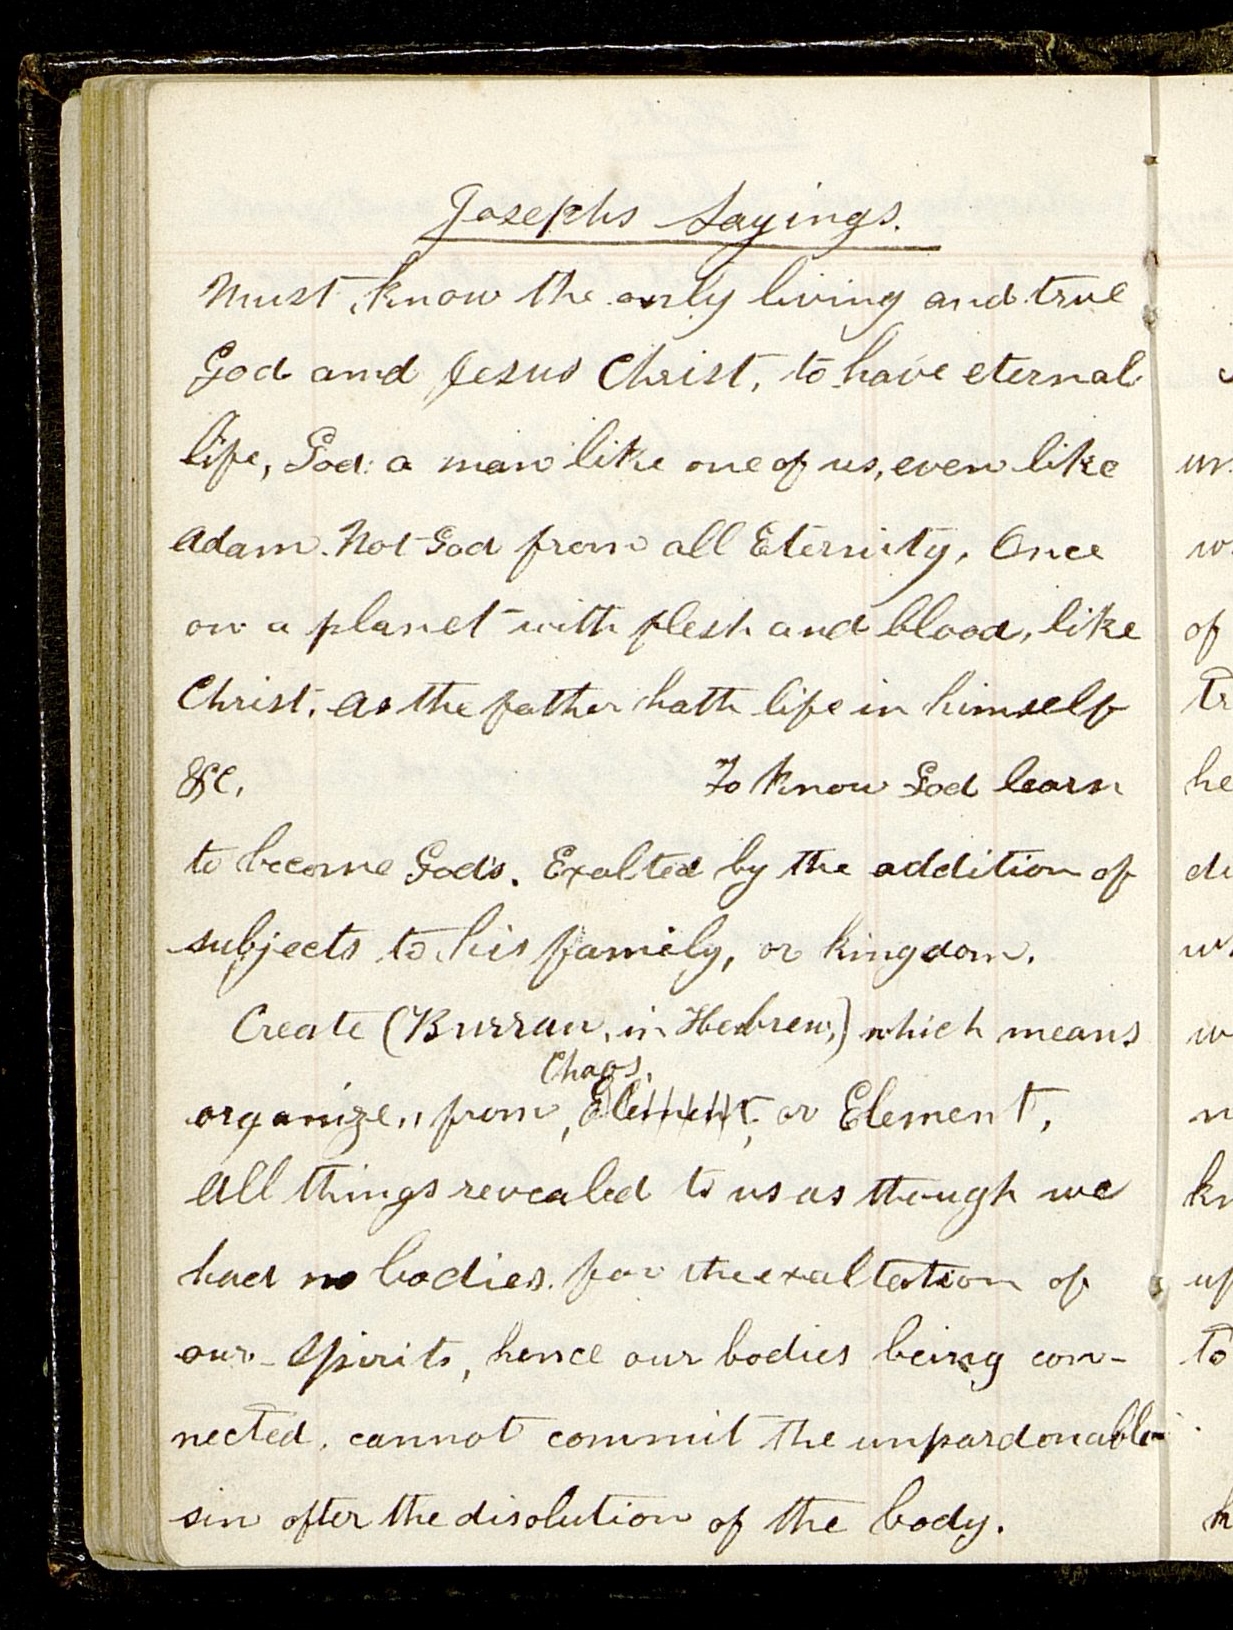 Josephs Sayings.
Must, know the only living and true
God and Jesus Christ, to have eternal
life, God: a man like one of us, even like
Adam. Not God from all Eternity. Once
on a planet with flesh and blood, like
Christ. As the father hath life in himself
&c. To know God learn
to become Gods. Exalted by the addition of
subjects to his family, or kingdom.
Create (Burrau, in Hebrew,) which means
Chaos,
organize,, from, Element, or Element,
All things revealed to us as though we
had no bodies. for the exaltation of
our Spirits, hence our bodies being con-
nected, cannot commit the unpardonable
sin after the disolution of the body.
of
he
to